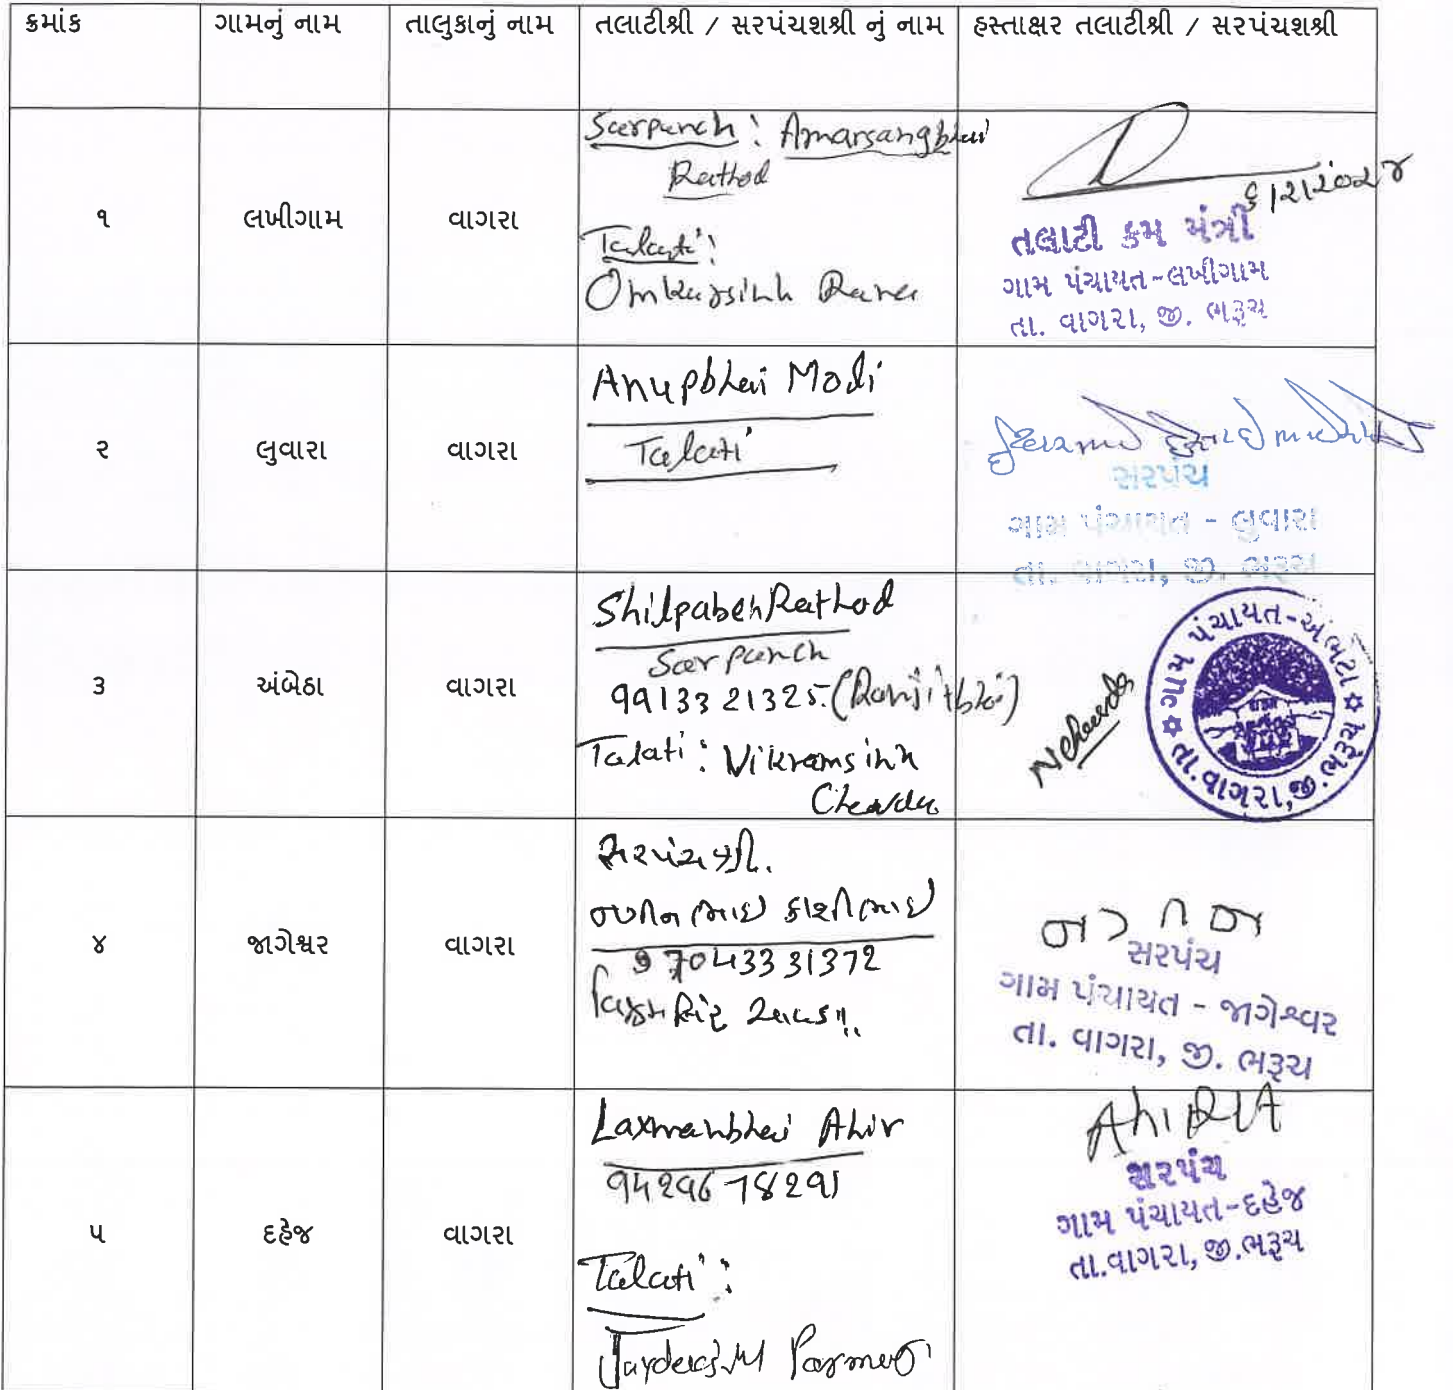 ક્રમાંક
ગામનું નામ
તાલુકાનું નામ
તલાટીશ્રી / સરપંચશશ્રી નું નામ
હસ્તાક્ષર તલાટીશ્રી / સરપંચશશ્રી
૧
લખીગામ
વાગરા
Sarpanch : Amarsangbhai
Rathod
Talati :
Omkarsinh Rana
તલાટી કમ મંત્રી
ગામ પંચાયત-લખીગામ
તા. વાગરા, જી. ભરૂચ
૨
લુવારા
વાગરા
Anupbhai Modi
Talati
સરપંચ
ગામ પંચાયત - લુવારા
તા. વાગરા, જી. ભરૂચ
૩
અંબેઠા
વાગરા
Shilpaben Rathod
Sarpanch
9913321325. (Ranjitbhai)
Talati : Vikramsinh
Chavda
ગામ પંચાયત-અંભેટા
તા.વાગરા,જી.ભરૂચ
૪
જાગેશ્વર
વાગરા
સરપંચ શ્રી.
કાશીભાઇ
97043331372
સરપંચ
ગામ પંચાયત - જાગેશ્વર
તા. વાગરા, જી. ભરૂચ
૫
દહેજ
વાગરા
Laxmanbhai Ahir
9429678291
Talati :
Parmar
સરપંચ
ગામ પંચાયત-દહેજ
તા.વાગરા, જી.ભરૂચ